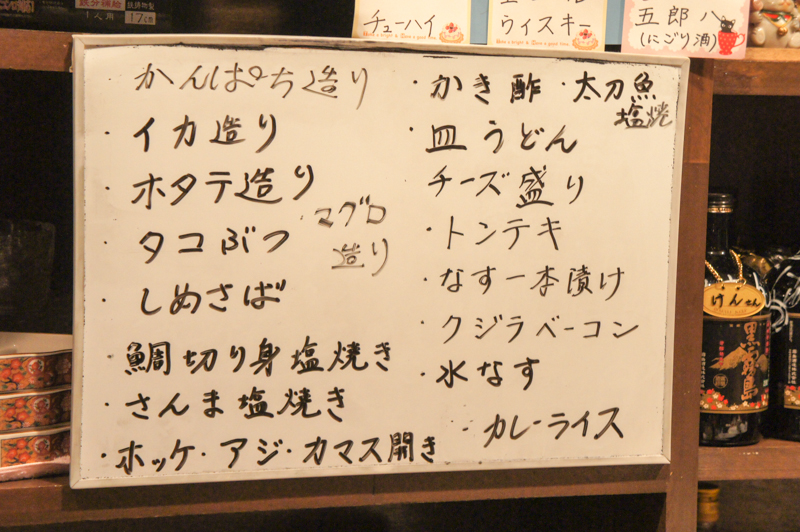 鉄分補給
1人用
17cm
チューハイ
ウィスキー
五郎八
(にごり酒)
かんぱち造り
・イカ造り
・ホタテ造り
・タコぶつ
・マグロ
造り
・しめさば
鯛切り身塩焼き
・さんま塩焼き
・ホッケ・アジ・カマス開き
・かき酢・太刀魚
塩焼
・皿うどん
チーズ盛り
・トンテキ
・なす一本漬け
・クジラベーコン
・水なす
・カレーライス
げんさん
黒霧島